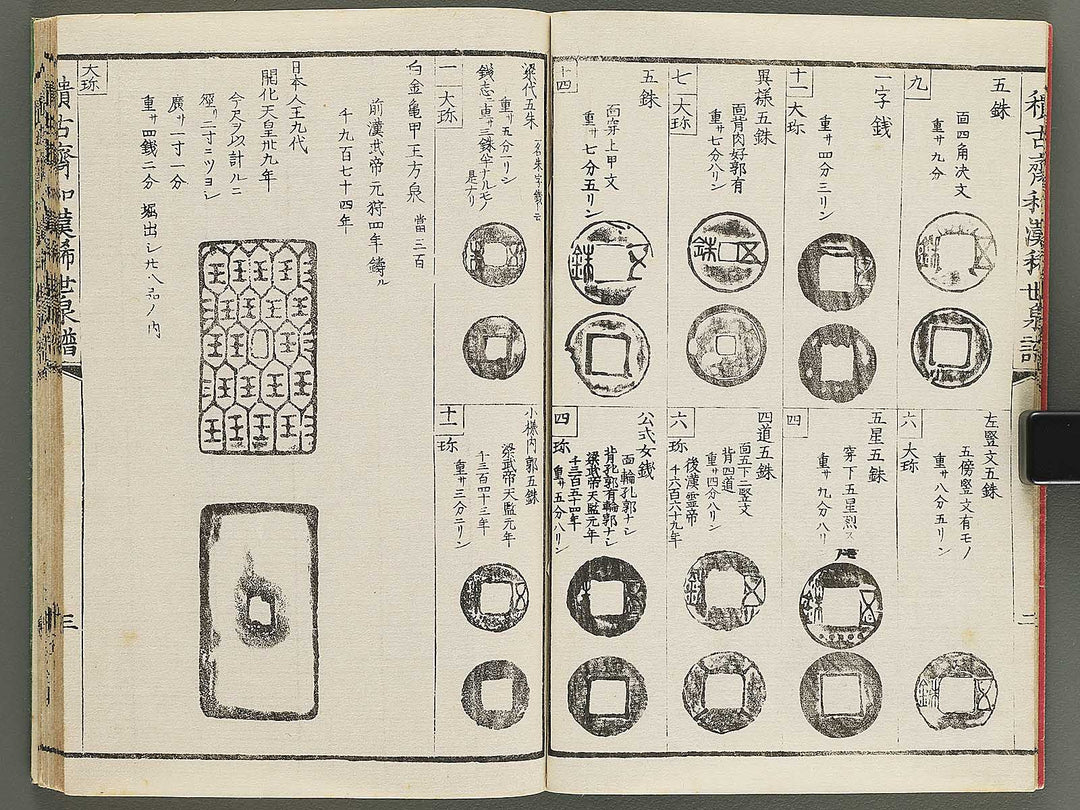 九
五銖
面四角决文
重サ九分
十一
大珎
一字銭
重サ四分三リン
七
大珎
異様五銖
面背肉好郭有
重サ七分八リン
十四
五銖
面穿上甲文
重サ七分五リン
六
大珎
左竪文五銖
五傍竪文有モノ
重サ八分五リン
四
五星五銖
穿下五星烈ス
重サ九分八リ
六
珎
四道五銖
面五下二竪文
背四道
重サ四分八リン
後漢霊帝
千六百六十九年
四
珎
公式女銭
面輪孔郭ナシ
背孔郭有輪郭ナシ
梁武帝天監元年
千三百五十四年
重サ五分八リン
一
大珎
梁代五朱
重サ五分二リン
是ナリ
十一
珎
小様内郭五銖
梁武帝天監元年
千三百四十三年
重サ三分二リン
白金亀甲王方泉 當三百
前漢武帝元狩四年鋳ル
千九百七十四年
日本人王九代
開化天皇卅九年
今尺ヲ以計ルニ
徑リ二寸二ツヨシ
廣サ一寸一分
重サ四銭二分 堀出シ廿八品ノ内
大珎
三